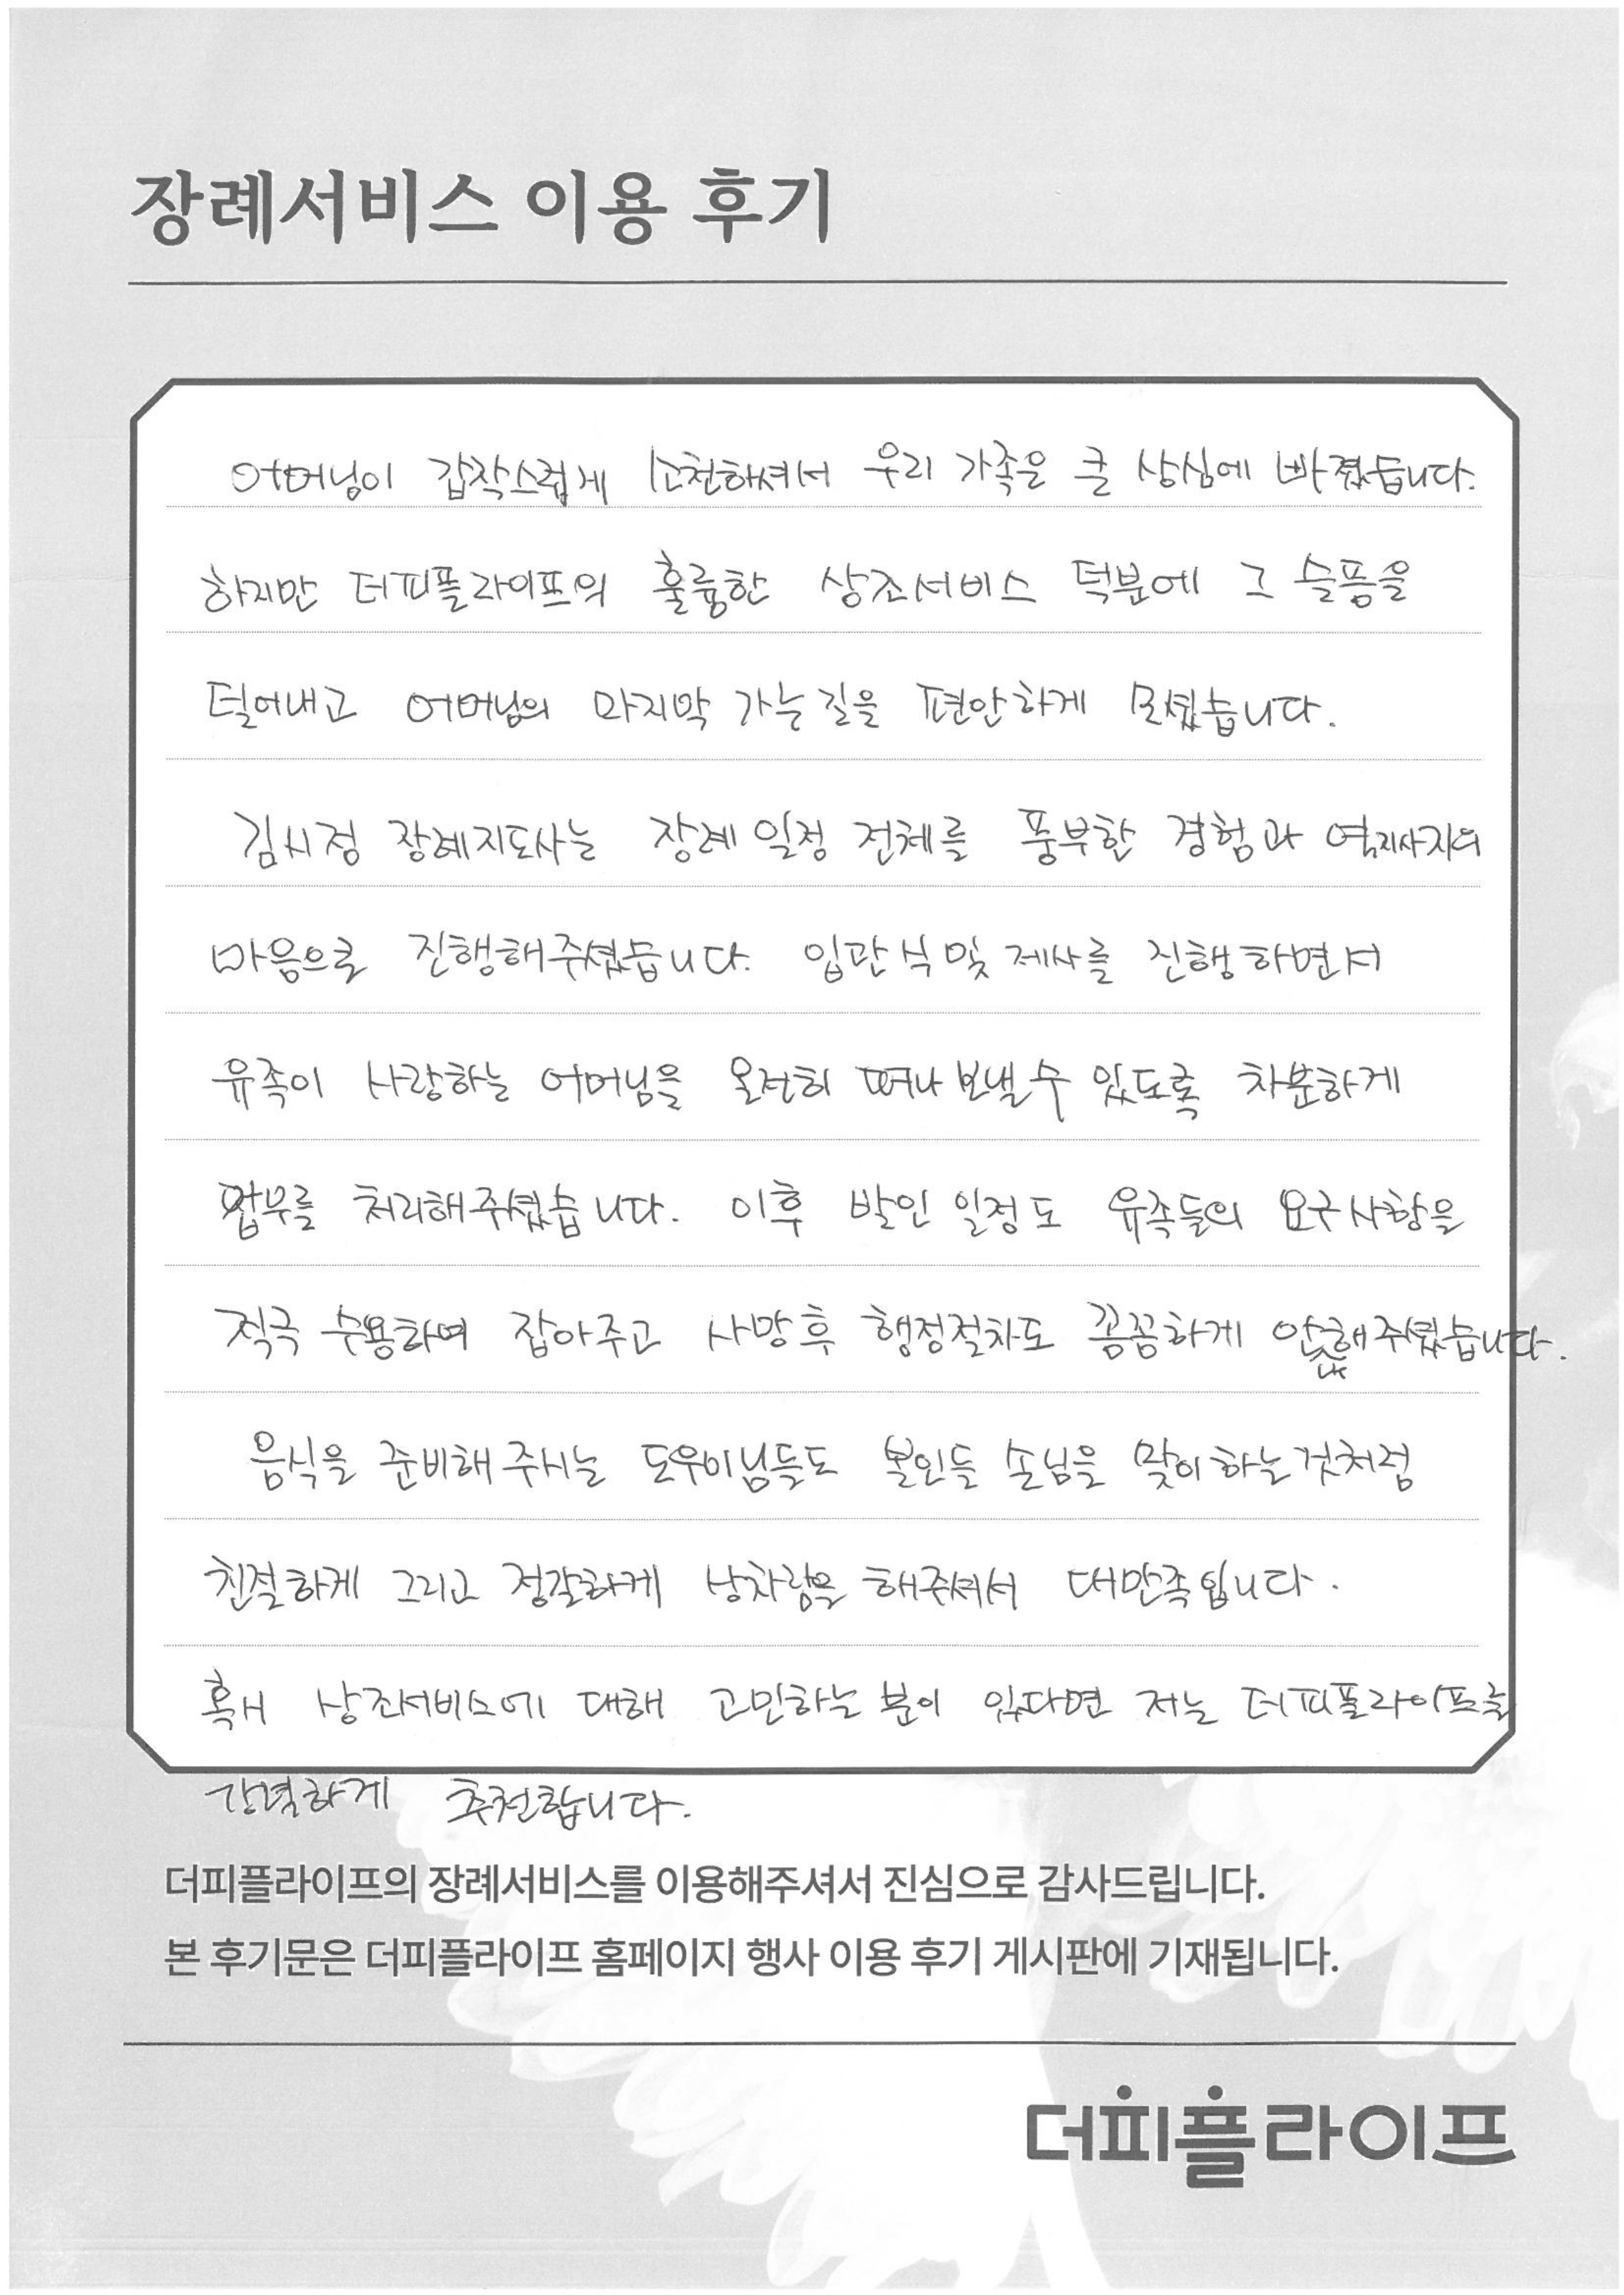 장례서비스 이용 후기
어머님이 갑작스럽게 소천하셔서 우리 가족은 큰 상심에 빠졌습니다.
하지만 더피플라이프의 훌륭한 상조서비스 덕분에 그 슬픔을
털어내고 어머님의 마지막 가는길을 편안하게 모셨습니다.
김시정 장례지도사는 장례일정 전체를 풍부한 경험과
마음으로 진행해주셨습니다. 입관식 및 제사를 진행하면서
유족이 사랑하는 어머님을 온전히 떠나 보낼 수 있도록 차분하게
업무를 처리해주셨습니다. 이후 발인 일정도 유족들의 요구사항을
적극 수용하여 잡아주고 사망후 행정절차도 꼼꼼하게 안내해주셨습니다.
음식을 준비해 주시는 도우미님들도 본인들 손님을 맞이하는것처럼
친절하게 그리고 정갈하게 상차림을 해주셔서 대만족입니다.
혹시 상조서비스에 대해 고민하는 분이 있다면 저는 더피플라이프를
강력하게 추천합니다.
더피플라이프의 장례서비스를 이용해주셔서 진심으로 감사드립니다.
본 후기문은 더피플라이프 홈페이지 행사 이용 후기 게시판에 기재됩니다.
더피플라이프